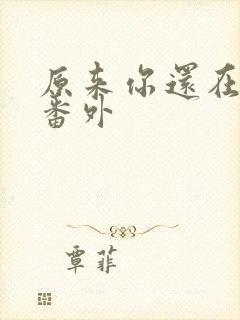 原来你還在
番外
覃菲